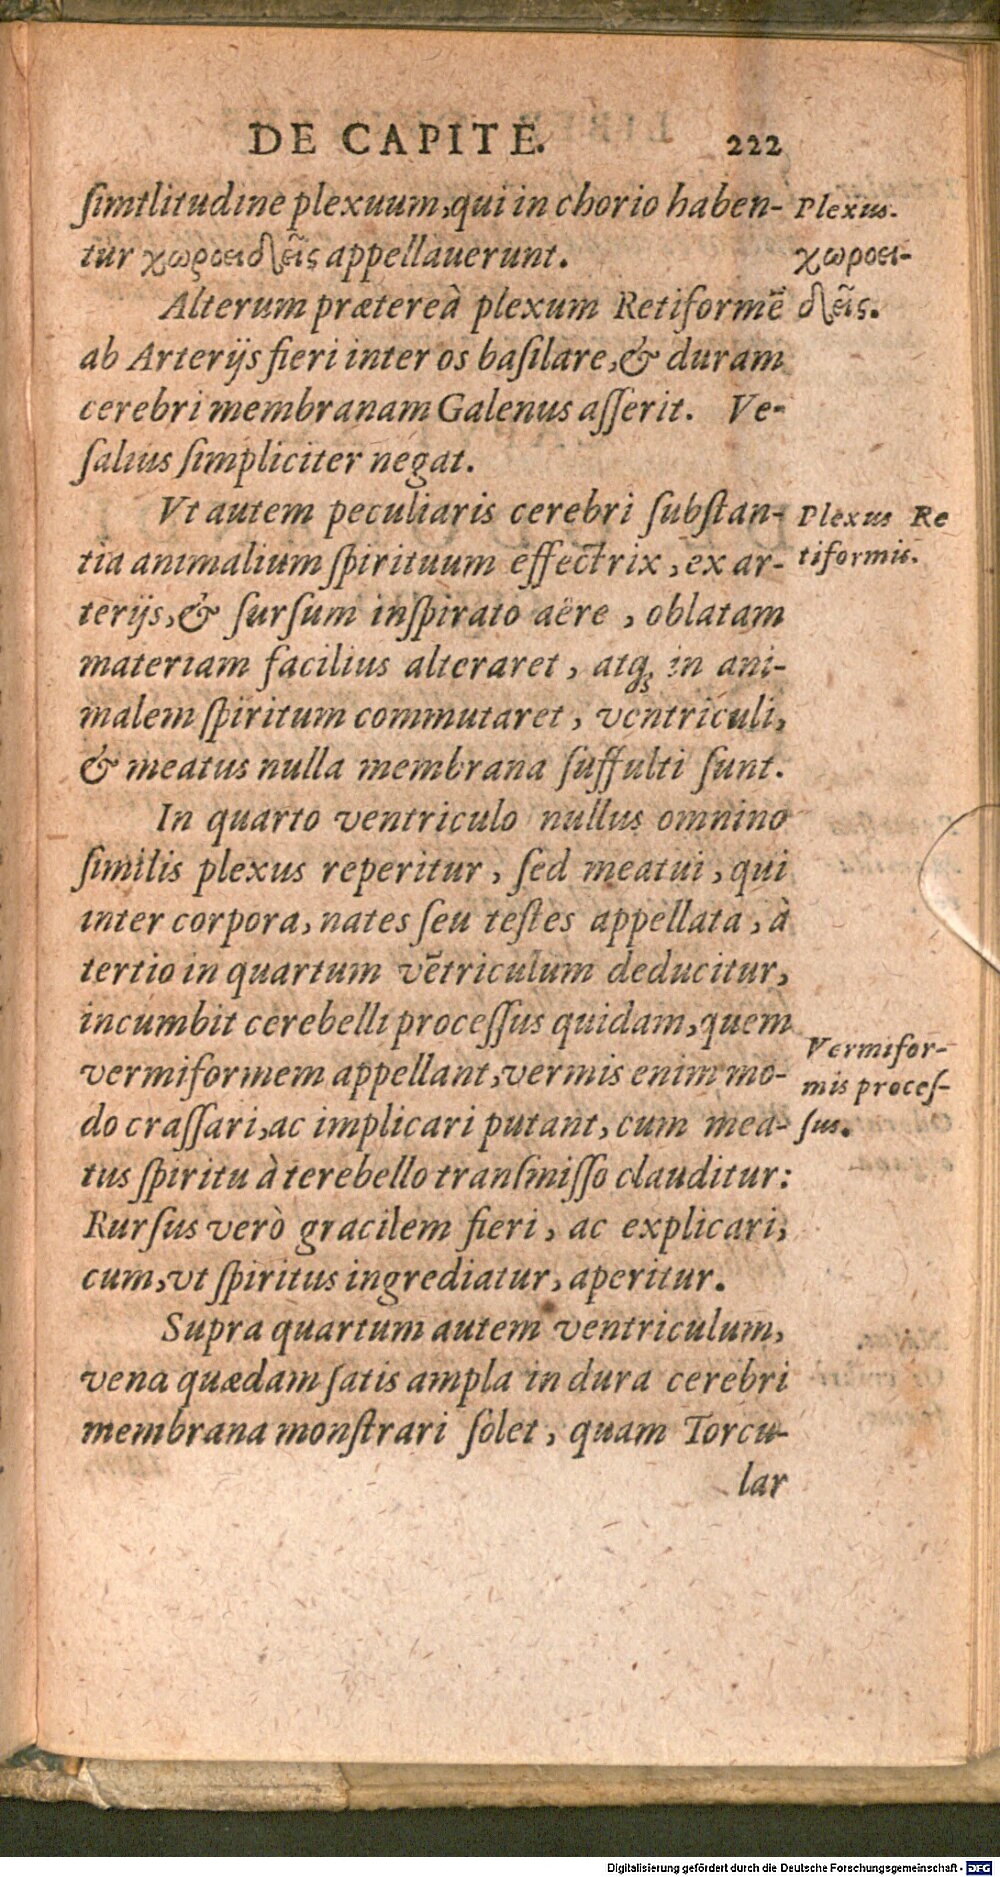 DE CAPITE. 222
ſimilitudine plexuum,qui in chorio haben- Plexus.
tur χωροειδεῖς appellauerunt. χωροει-
Alterum prætereà plexum Retiformē δεῖς.
ab Arterijs fieri inter os baſilare,& duram
cerebri membranam Galenus aſſerit. Ve-
ſalius ſimpliciter negat.
Vt autem peculiaris cerebri ſubſtan- Plexus Re
tia animalium ſpirituum effectrix, ex ar- tiformis.
terijs,& ſurſum inſpirato aëre, oblatam
materiam facilius alteraret, atq; in ani-
malem ſpiritum commutaret, ventriculi,
& meatus nulla membrana ſuffulti ſunt.
In quarto ventriculo nullus omnino
ſimilis plexus reperitur, ſed meatui, qui
inter corpora, nates ſeu teſtes appellata, à
tertio in quartum vētriculum deducitur,
incumbit cerebelli proceſſus quidam,quem
vermiformem appellant,vermis enim mo- Vermifor-
do craſſari,ac implicari putant, cum mea- mis proceſ-
tus ſpiritu à terebello tranſmiſſo clauditur: ſus.
Rurſus verò gracilem fieri, ac explicari,
cum,vt ſpiritus ingrediatur, aperitur.
Supra quartum autem ventriculum,
vena quædam ſatis ampla in dura cerebri
membrana monſtrari ſolet, quam Torcu-
lar
Digitalisierung gefördert durch die Deutsche Forschungsgemeinschaft - DFG